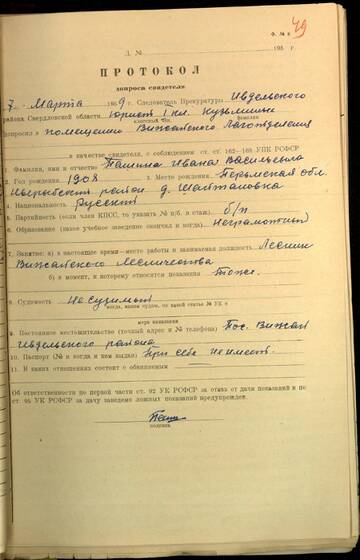 49
Ф. № 6
Д. №
195 г.
ПРОТОКОЛ
допроса свидетеля
7 Марта 1959 г. Следователь Прокуратуры Ивдельского
района Свердловской области Юрист I кл. Кузьминых
классный чин фамилия
допросил в помещении Вижайского Лаготделения
в качестве свидетеля, с соблюдением ст. ст. 162—168 УПК РСФСР
1. Фамилия, имя и отчество Пашина Ивана Васильевича
2. Год рождения 1908 3. Место рождения Пермьская обл.
район д. Шайтановка
4. Национальность Русский
5. Партийность (если член КПСС, то указать № п/б. и стаж) б/п
6. Образование (какое учебное заведение окончил и когда) Неграмотный
7. Занятие: а) в настоящее время—место работы и занимаемая должность Лесник
Вижайского Лесничества
б) в момент, к которому относятся показания Тоже.
8. Судимость Не судимый
когда, каким судом, по какой статье № УК и
мера наказания
9. Постоянное местожительство (точный адрес и № телефона) Пос. Вижай
Ивдельского района
10. Паспорт (№ и когда и кем выдан) При себе не имеет.
11. В каких отношениях состоит с обвиняемым
Об ответственности по первой части ст. 92 УК РСФСР за отказ от дачи показаний и по
ст. 95 УК РСФСР за дачу заведомо ложных показаний предупрежден.
подпись